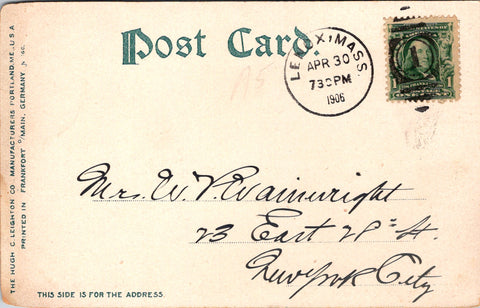 Post Card.
LENOX, MASS.
APR 30
730PM
1906
1
Mrs. W. P. Wainwright
23 East
New York City
THIS SIDE IS FOR THE ADDRESS
THE HUGH C. LEIGHTON CO. MANUFACTURERS PORTLAND, ME., U.S.A.
PRINTED IN FRANKFORT O/MAIN, GERMANY